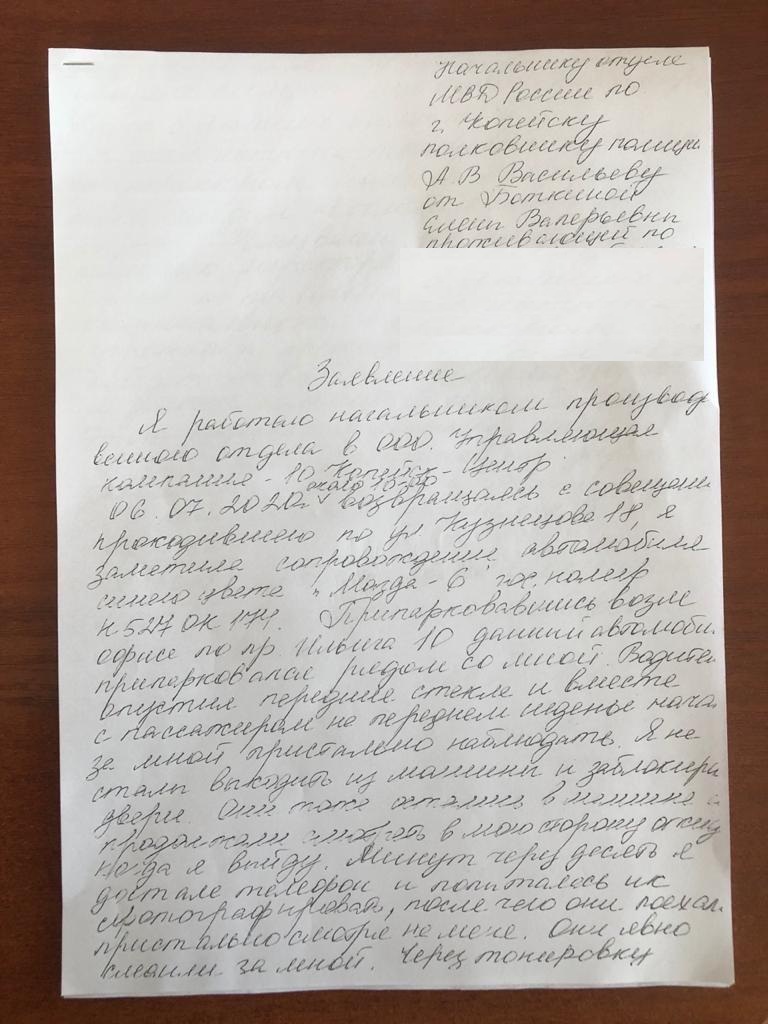 Начальнику отдела
МВД России по
г. Копейску
полковнику полиции
А В Васильеву
от Боткиной
Елены Валерьевны
проживающей по
Заявление
Я работаю начальником производ
венного отдела в ООО. Управляющая
компания - 10 Копейск - Центр
около
06. 07. 2020г. возвращаясь с совещани
проходившего по ул Кузнецова 18, я
заметила сопровождение автомобиля
синего цвета "Мазда - 6" гос. номер
527 ОК 174. Припарковавшись возле
офиса по пр. Ильича 10 данный автомоби
припарковался рядом со мной. Водител
опустил передние стекла и вместе
с пассажиром на переднем сиденье нача
за мной пристально наблюдать. Я не
стала выходить из машины и заблокиро
двери. Они тоже остались в машине и
продолжали смотреть в мою сторону ожид
когда я выйду. Минут через десять я
достала телефон и попыталась их
сфотографировать, после чего они поехал
пристально смотря на меня. Они явно
следили за мной. Через тонировку